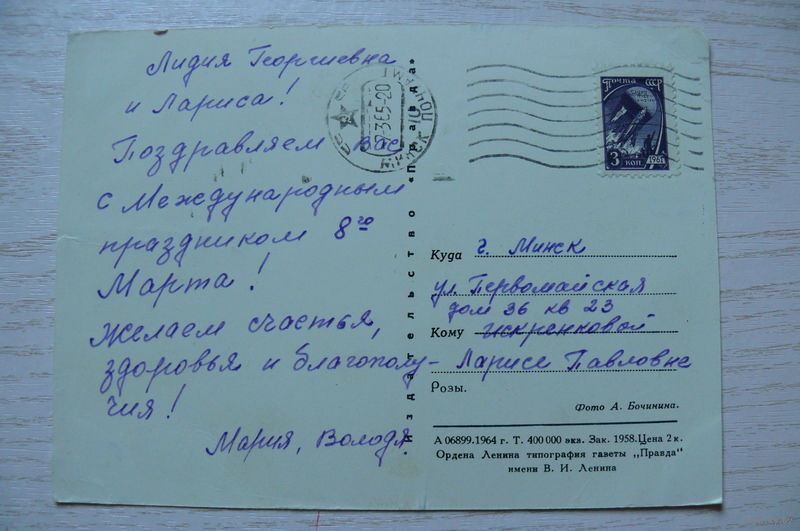 Лидия Георгиевна
и Лариса!
Поздравляем Вас
с Международным
праздником 8го
Марта!
Желаем счастья,
здоровья и благополу-
чия!
Мария, Володя
Издательство «Правда»
МИНСК ПОЧТАМТ
-2365-20
Почта СССР
3 коп 1961
Куда г. Минск
ул. Первомайская
дом 36 кв 23
Кому Искренковой
Ларисе Павловне
Розы.
Фото А. Бочинина.
А 06899.1964 г. Т. 400 000 экз. Зак. 1958. Цена 2 к.
Ордена Ленина типография газеты „Правда"
имени В. И. Ленина